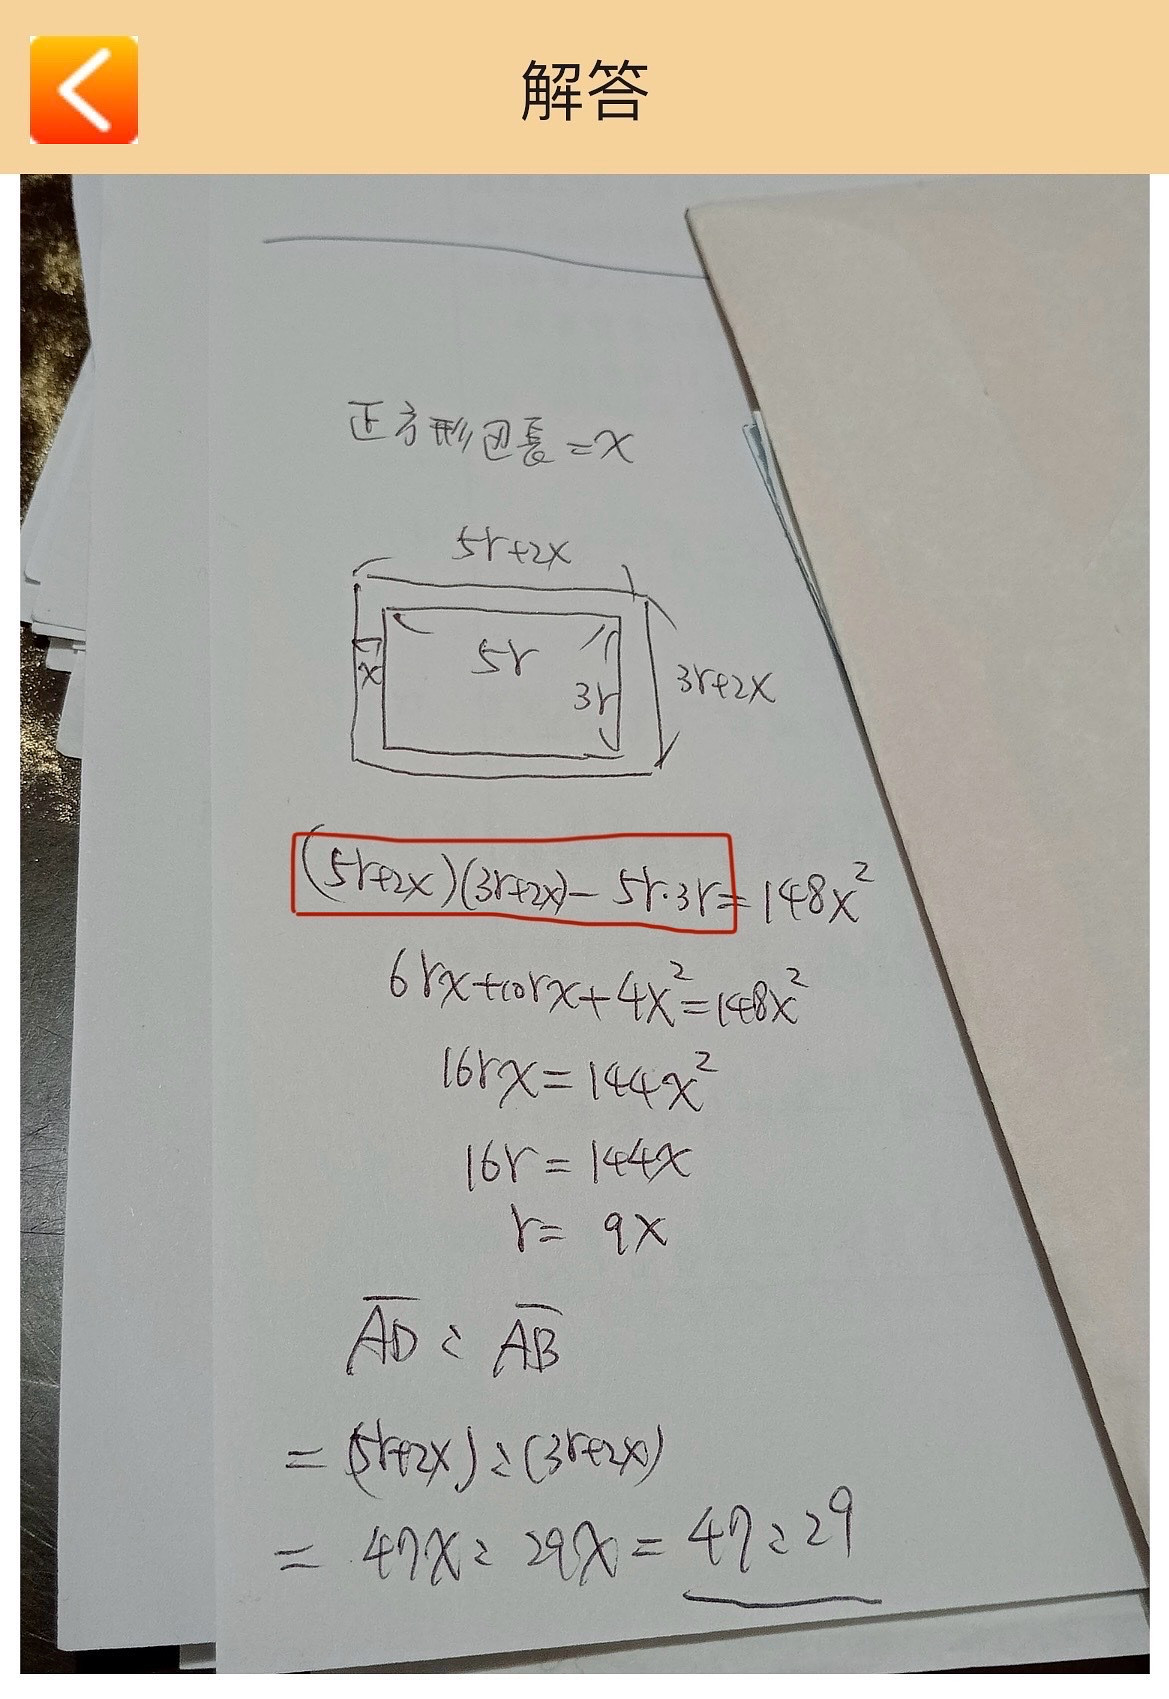 解答
正方形边長=x
5r+2x
5r
x
3r
3r+2x
(5r+2x)(3r+2x)-5r·3r=148x²
6rx+10rx+4x²=148x²
16rx=144x²
16r=144x
r=9x
A̅D̅:A̅B̅
=(5r+2x):(3r+2x)
=47x:29x=47:29